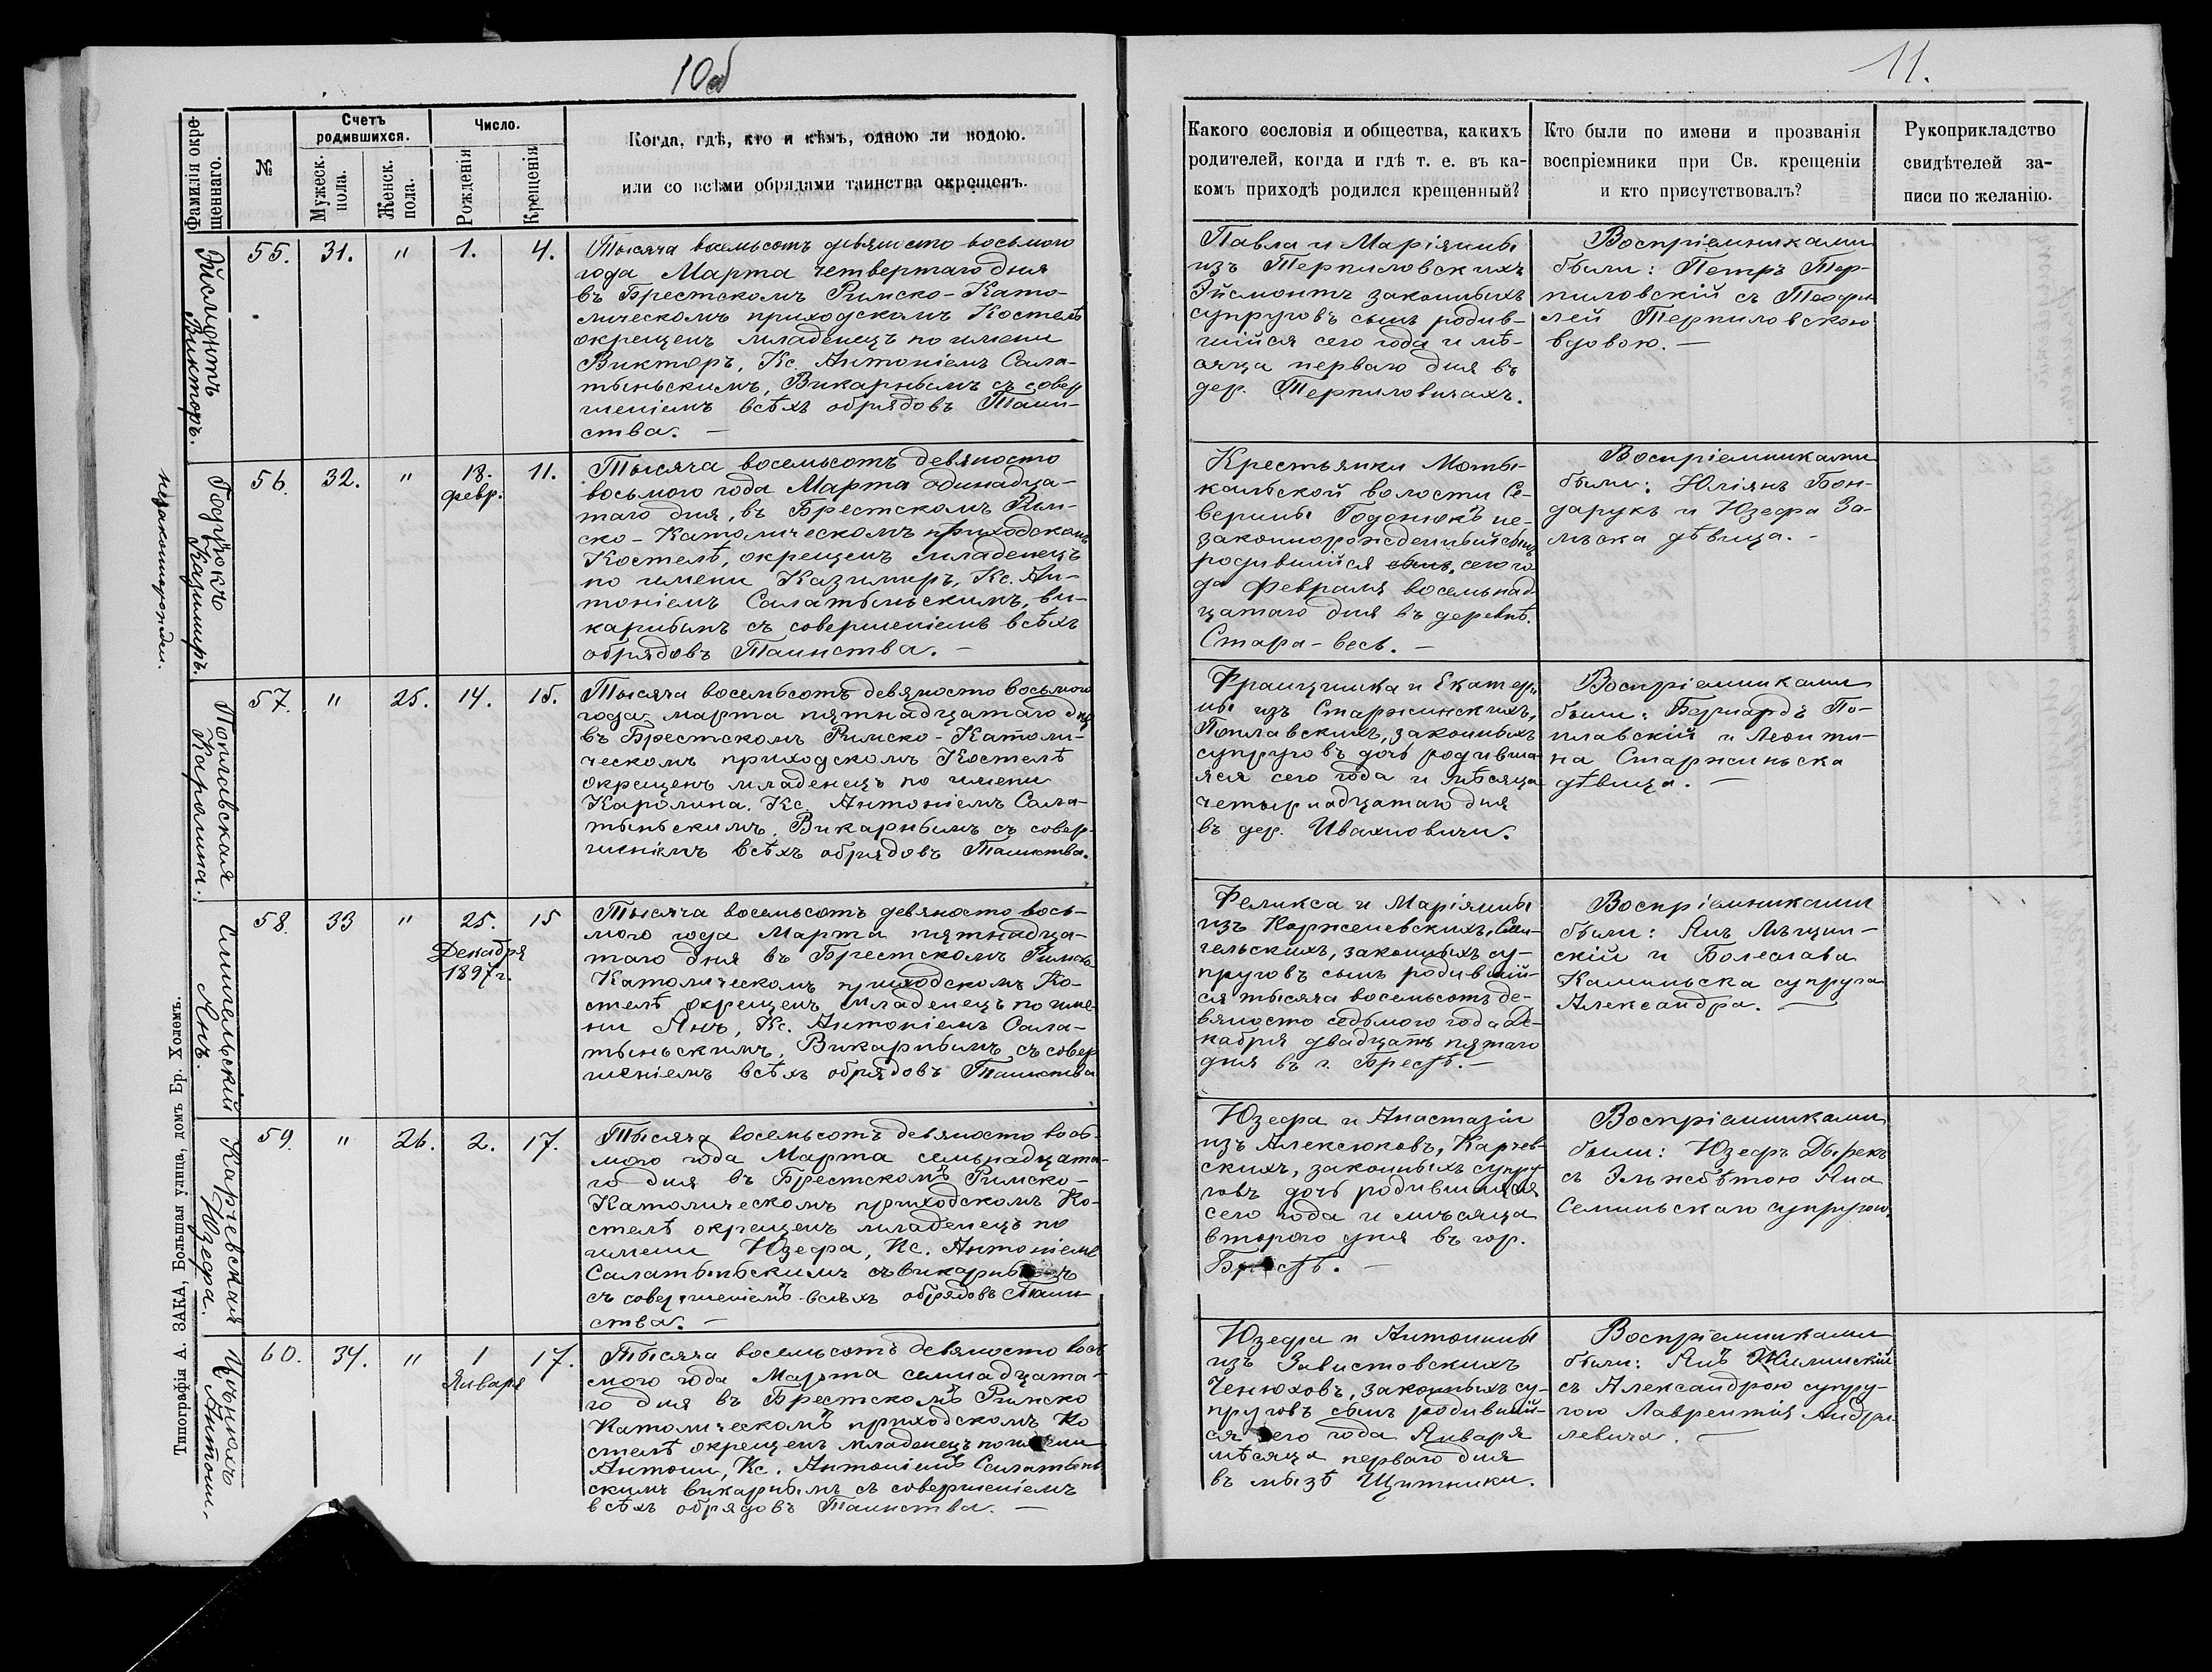 10об
11.
Фамилія окре-
щеннаго.
№
Счетъ
родившихся.
Мужеск.
пола.
Женск.
пола.
Число.
Рожденія
Крещенія
Когда, гдѣ, кто и кѣмъ, одною ли водою.
или со всѣми обрядами таинства окрещенъ.
Какого сословія и общества, какихъ
родителей, когда и гдѣ т. е. въ ка-
комъ приходѣ родился крещенный?
Кто были по имени и прозванія
воспріемники при Св. крещеніи
и кто присутствовалъ?
Рукоприкладство
свидѣтелей за-
писи по желанію.
Эйсмонтъ
Викторъ.
55. 31. " 1. 4.
Тысяча восемьсотъ девяносто восьмого
года Марта четвертаго дня
въ Брестскомъ Римско-Като-
лическомъ приходскомъ Костелѣ
окрещенъ младенецъ по имени
Викторъ, Кс. Антоніемъ Сала-
тыньскимъ, Викарнымъ съ совер
шеніемъ всѣхъ обрядовъ Таин-
ства. —
Павла и Маріянны
изъ Терпиловскихъ
Эйсмонтъ законныхъ
супруговъ сынъ родив-
шійся сего года и мѣ-
сяца перваго дня въ
дер. Терпиловичахъ.
Воспріемниками
были: Петръ Тер-
пиловскій съ Теофи
лей Терпиловскою
вдовою. —
Годонюкъ
Казимиръ.
незаконнорожден.
56. 32. " 18. 11.
февр.
Тысяча восемьсотъ девяносто
восьмого года Марта одинадца-
таго дня, въ Брестскомъ Рим-
ско-Католическомъ приходскомъ
Костелѣ, окрещенъ младенецъ
по имени Казимиръ, Кс. Ан-
тоніемъ Салатыньскимъ, ви-
карнымъ съ совершеніемъ всѣхъ
обрядовъ Таинства. —
Крестьянки Моты-
кальской волости Се-
верины Годонюкъ не-
законнорожденный сынъ
родившійся сынъ, сего го
да Февраля восемьнад
цатаго дня въ деревнѣ.
Стара-весь. —
Воспріемниками
были: Юліянъ Бон-
дарукъ и Юзефа За-
лѣска дѣвица. -
Поплавская
Каролина.
57. " 25. 14. 15.
Тысяча восемьсотъ девяносто восьмого
года марта пятнадцатаго дня
въ Брестскомъ Римско-Католи-
ческомъ приходскомъ Костелѣ
окрещенъ младенецъ по имени
Каролина. Кс. Антоніемъ Сала-
тыньскимъ. Викарнымъ съ совер-
шеніемъ всѣхъ обрядовъ Таинства.
Францишка и Екатери
ны изъ Старжинскихъ,
Поплавскихъ, законныхъ
супруговъ дочь родивша
яся сего года и мѣсяца
четырнадцатаго дня
въ дер. Ивахновичи.
Воспріемниками
были: Бернардъ По-
плавскій и Леонти-
на Старжиньска
дѣвица. —
Янъ.
58. 33 " 25. 15
Декабря
1897 г.
Тысяча восемьсотъ девяносто вось-
мого года Марта пятнадца-
таго дня въ Брестскомъ Римско
Католическомъ приходскомъ Ко-
стелѣ окрещенъ младенецъ по име-
ни Янъ, Кс. Антоніемъ Сала-
тыньскимъ, Викарнымъ съ совер
шеніемъ всѣхъ обрядовъ Таинства
Феликса и Маріянны
изъ Корженевскихъ,
гельскихъ, законныхъ су-
пруговъ сынъ родившій-
ся тысяча восемьсотъ де-
вяносто седьмого года Де-
кабря двадцать пятаго
дня въ г. Брестѣ. —
Воспріемниками
были: Янъ
скій и Болеслава
Каминьска супруга
Александра. —
Карчевская
Юзефа.
59. " 26. 2. 17.
Тысяча восемьсотъ девяносто вось-
мого года Марта семьнадцата-
го дня въ Брестскомъ Римско-
Католическомъ приходскомъ Ко-
стелѣ окрещенъ младенецъ по
имени Юзефа, Кс. Антоніемъ
Салатыньскимъ съ викарнымъ
съ совершеніемъ всѣхъ обрядовъ Таин
ства. —
Юзефа и Анастазіи
изъ Алексюковъ, Карчев-
скихъ, законныхъ супру-
говъ дочь родившаяся
сего года и мѣсяца
второго дня въ гор.
Брестѣ. —
Воспріемниками
были: Юзефъ Дырекъ
съ Эльжбѣтою Яна
Семиньскаго супругою.
Антони.
60. 34. " 1 17.
Января
Тысяча восемьсотъ девяносто вось
мого года Марта семнадцата-
го дня въ Брестскомъ Римско
Католическомъ приходскомъ Ко
стелѣ окрещенъ младенецъ по имени
Антони, Кс. Антоніемъ Салатынь
скимъ викарнымъ съ совершеніемъ
всѣхъ обрядовъ Таинства. —
Юзефа и Антонины
изъ Завистовскихъ
Ченюховъ, законныхъ су-
пруговъ сынъ родившій-
ся сего года Января
мѣсяца перваго дня
въ мызѣ Щитники.
Воспріемниками
были: Янъ Жилинскій
съ Александрою супру-
гою Лаврентія Андри-
левича. —
Типографія А. ЗАКА, Большая улица, домъ Бр. Холемъ.